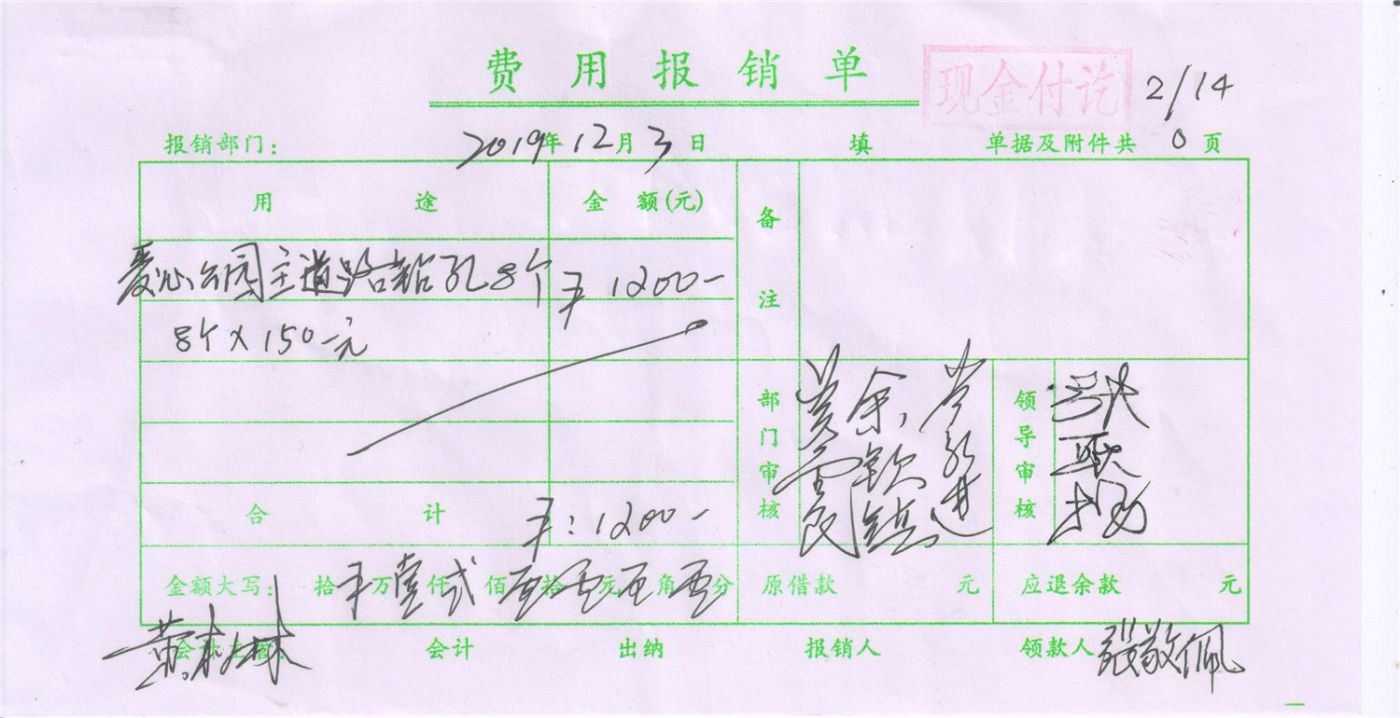 费用报销单 现金付讫 2/14
报销部门: 2019年12月3日 填 单据及附件共 0 页
用途 金额(元) 备注
爱心公园主道路钻孔8个 ¥1200-
8个×150-元
部门审核 领导审核
合计 ¥:1200-
金额大写: 拾 ¥ 万 壹 仟 贰 佰 零 拾 零 元 零 角 零 分 原借款 元 应退余款 元
会计 出纳 报销人 领款人 张敬佩